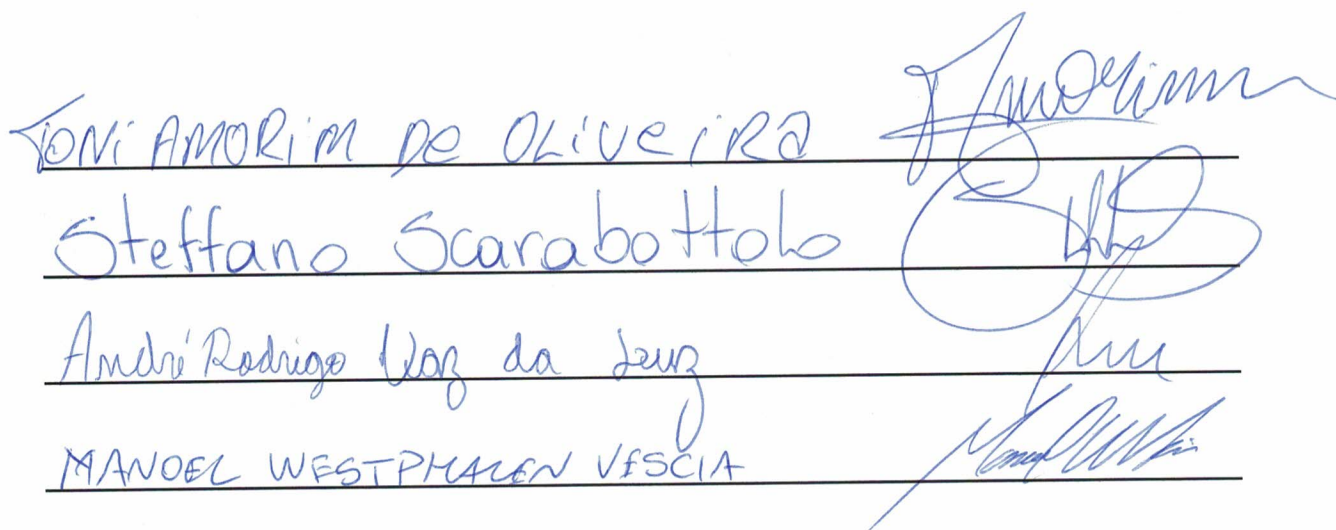 TONI AMORIM DE OLIVEIRA Amorim
Steffano Scarabottolo
André Rodrigo Vaz da Luz
MANOEL WESTPHALEN VESCIA